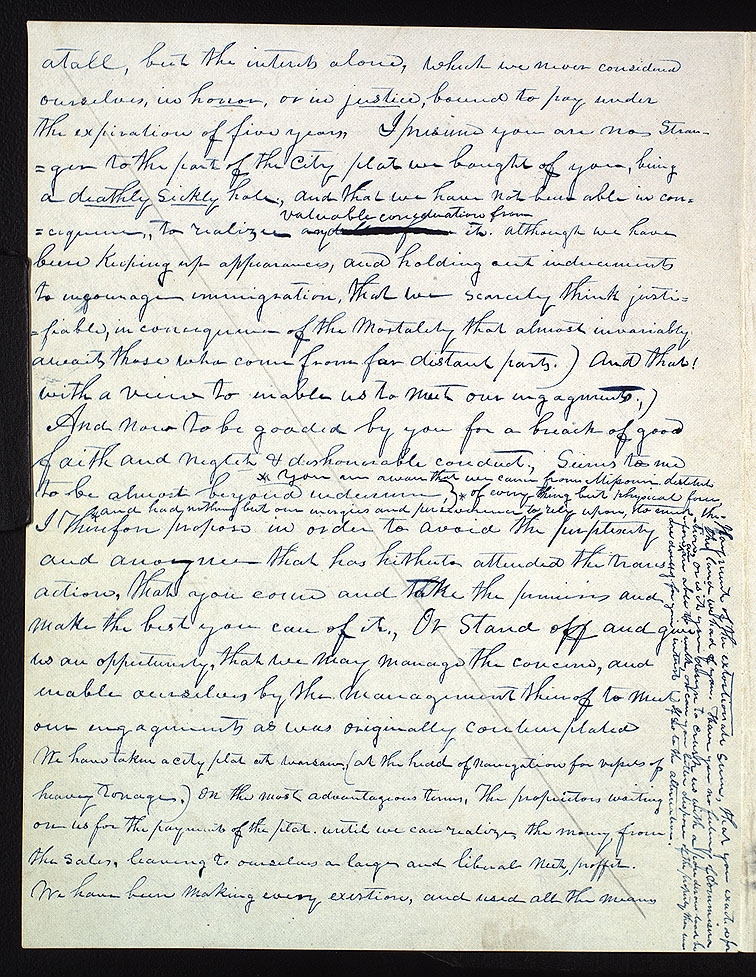 atall, but the interest alone, which we never considered
ourselves, in honor, or in justice, bound to pay under
the expiration of five years. I presume you are no Stran-
=ger to the part of the City plat we bought of you, being
a deathly sickly hole, and that we have not been able in con=
valuable consideration from
=cequence, to realize any it. although we have
been keeping up appearances, and holding out inducements
to incourage immigration, that we scarcely think justi=
=fiable, in concequence of the Mortality that almost invariably
awaits those who come from far distant parts.) And that!
with a view to enable us to meet our ingagments,)
And now to be goaded by you for a breach of good
faith and neglect & dishonourable conduct, Seems to me
* You are aware that we came from Missouri destitute
to be almost beyond indurance, * of every thing but physical force,
and had nothing but our energies and perseverance to rely upon, to meet the
I Therefore propose in order to avoid the perplexity
and anoyence that has hitherto attended the trans
action, that you come and take the premises and
make the best you can of it., Or Stand off and give
us an oppertunity, that we may manage the concern, and
enable ourselves by the Management thereof to meet
our engagments as was originally contemplated
We have taken a city plat at Warsaw, (at the head of navigation for vessels of
heavy tonage.) On the most advantageous terms, The proprietors waiting
on us for the payments of the plat. until we can realize the money from
the sales, leaving to ourselves a large and liberal nett, proffit.
We have been making every exertion, and used all the means
Payment of the extortionate sum, that you exacted for
the land we had of you. Have you no feelings of commiseration,
or is it your design to crush us with a ponderous load